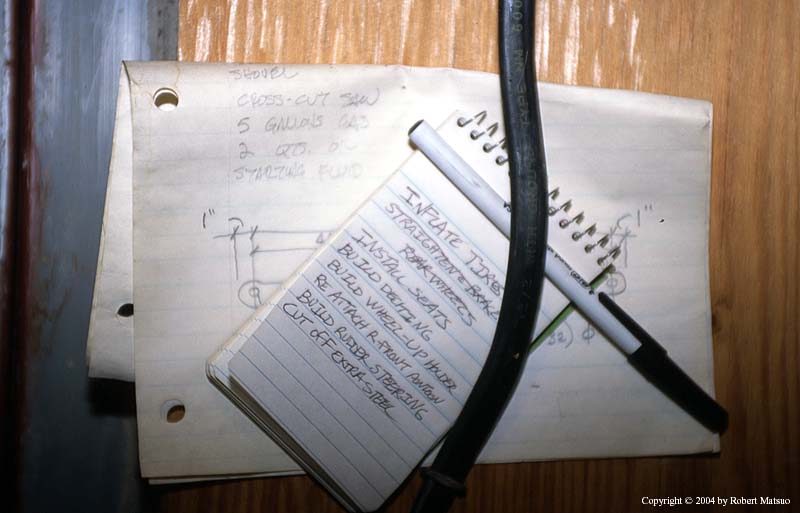 SHOVEL
CROSS-CUT SAW
5 GALLONS GAS
2 QTS. OIL
STARTING FLUID
1"
1"
INFLATE TIRES
STRAIGHTEN & BRAKE
REAR WHEELS
INSTALL SEATS
BUILD DECKING
BUILD WHEEL-UP HOLDER
RE ATTACH R. FRONT PONTOON
BUILD RUDDER STEERING
CUT OFF EXTRA STEEL
Copyright © 2004 by Robert Matsuo